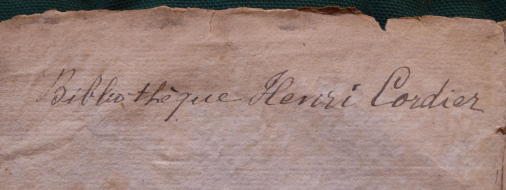 Bibliothèque Henri Cordier